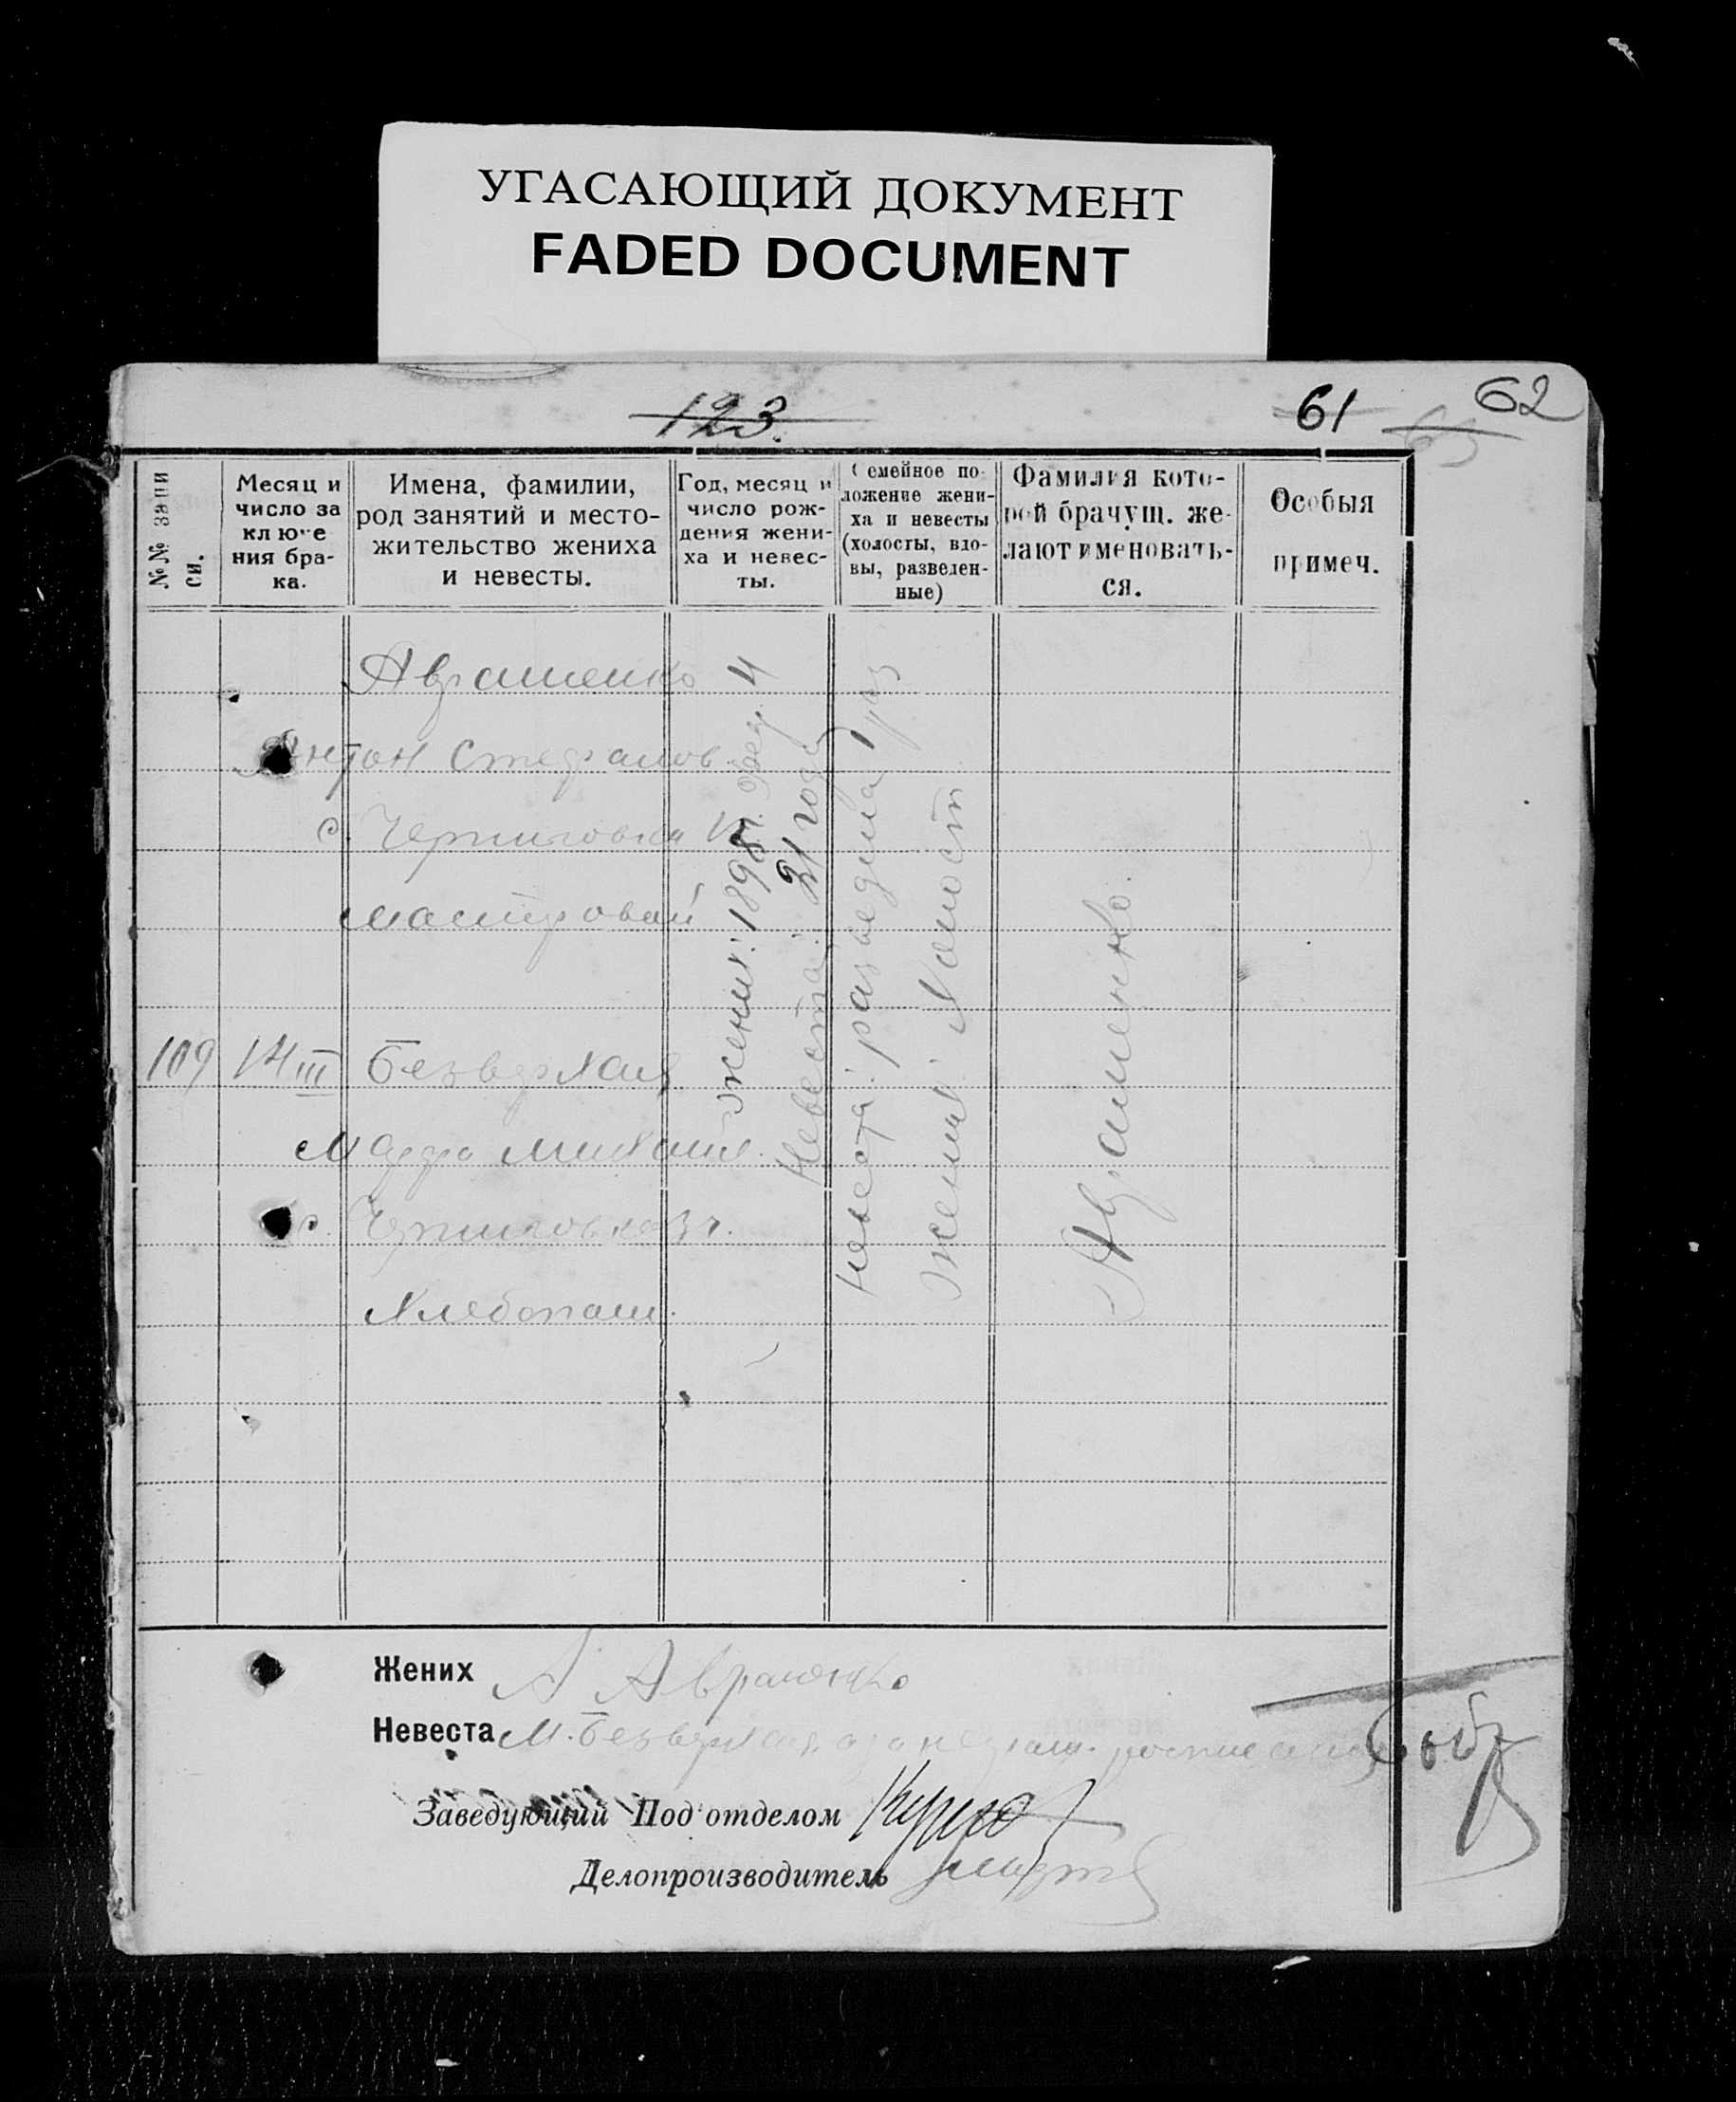 УГАСАЮЩИЙ ДОКУМЕНТ
FADED DOCUMENT
123.
61
62
№№ запи
си.
Месяц и
число за
ключе
ния бра-
ка.
Имена, фамилии,
род занятий и место-
жительство жениха
и невесты.
Год, месяц и
число рож-
дения жени-
ха и невес-
ты.
Семейное по-
ложение жени-
ха и невесты
(холосты, вдо-
вы, разведен-
ные)
Фамилия кото-
рой брачущ. же-
лают именовать-
ся.
Особыя
примеч.
Авраменко
Антон Стефанов.
с. Черниговка
мастровой
109
14 III
Безверхая
Марфа Михаил.
с. Черниговка
Хлебопаш.
Жених: 1898 г.
Невеста: 21 год
Невеста: разведена 1 раз
Жених: Холост
Авраменко.
Жених А Авраменко
Невеста М. Безверхая
Заведующий Под'отделом
Делопроизводитель